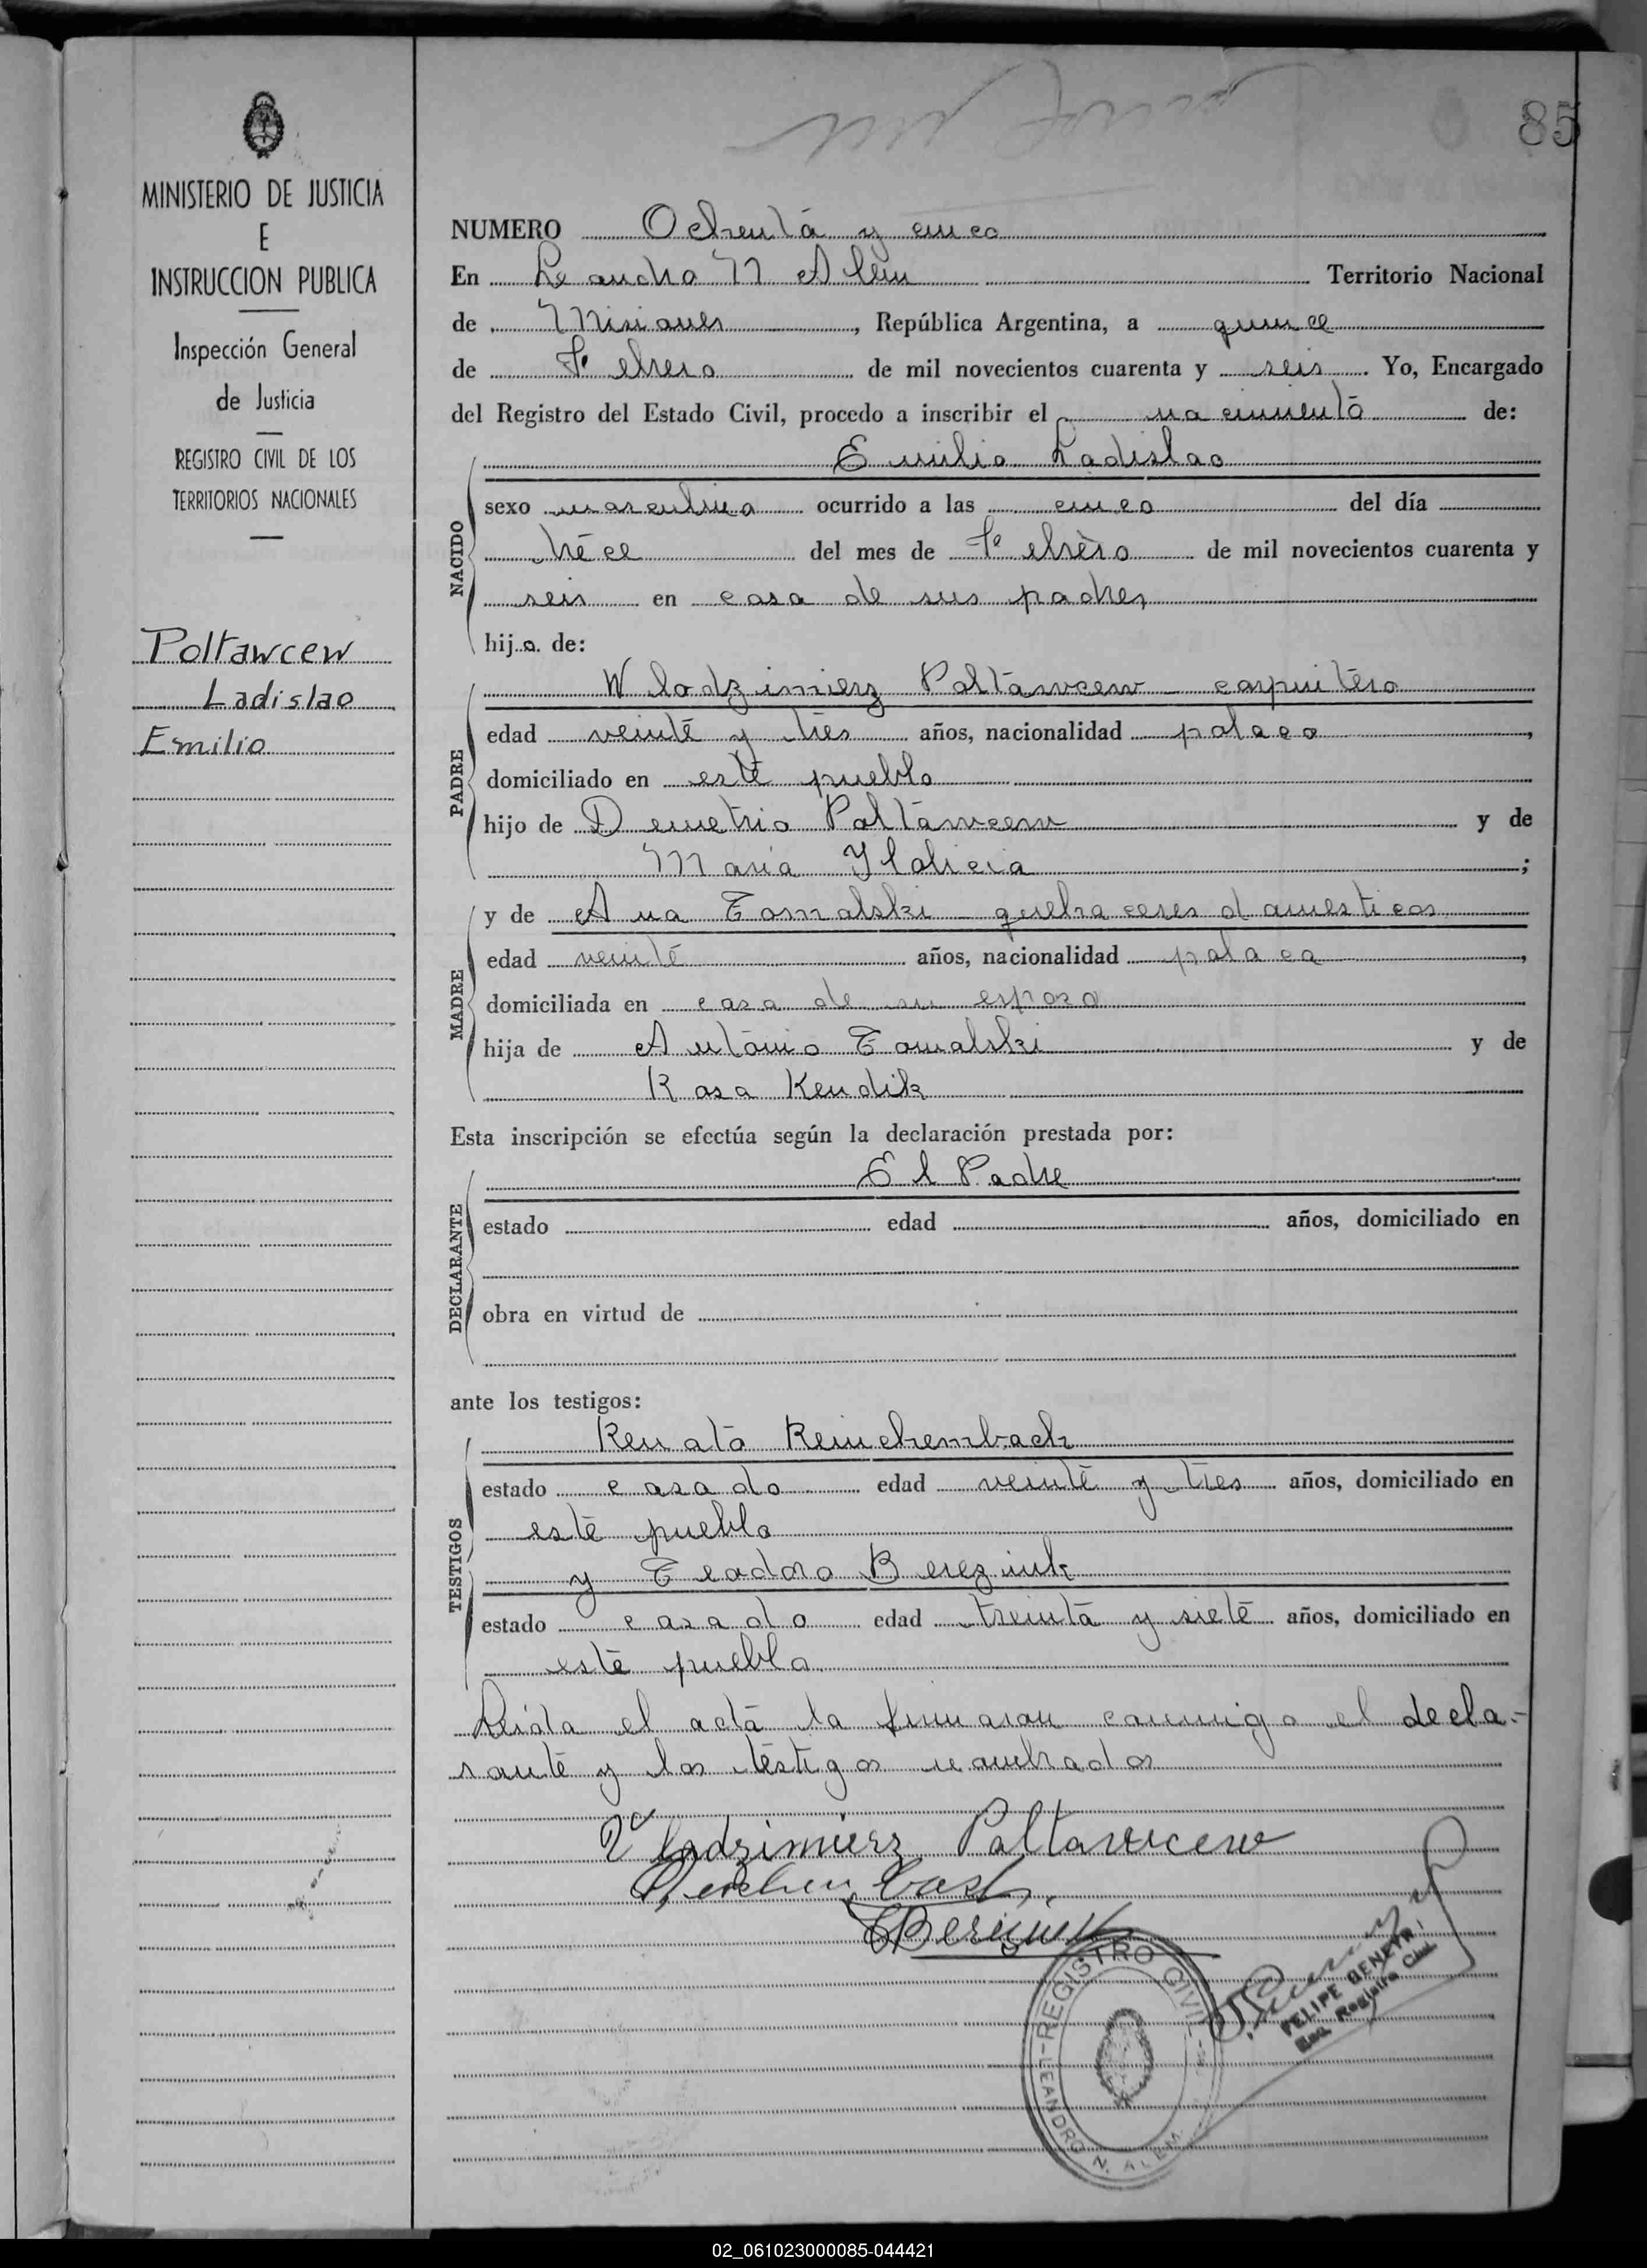 85
MINISTERIO DE JUSTICIA
E
INSTRUCCION PUBLICA
Inspección General
de Justicia
REGISTRO CIVIL DE LOS
TERRITORIOS NACIONALES
Poltawcew
Ladislao
Emilio
NUMERO Ochenta y cinco
En Leandro N Alem Territorio Nacional
de Misiones, República Argentina, a quince
de Febrero de mil novecientos cuarenta y seis. Yo, Encargado
del Registro del Estado Civil, procedo a inscribir el nacimiento de:
NACIDO
Emilio Ladislao
sexo masculino ocurrido a las cinco del día
tréce del mes de Febrero de mil novecientos cuarenta y
seis en casa de sus padres
hijo de:
PADRE
Wlodzimierz Poltawcew - carpintero
edad veinte y tres años, nacionalidad polaco,
domiciliado en este pueblo
hijo de Demetrio Poltawcew y de
Maria ;
MADRE
y de Ana Tomalski - quehaceres domesticos
edad veinte años, nacionalidad polaca,
domiciliada en casa de su esposo
hija de Antonio Tomalski y de
Rosa Kendik
Esta inscripción se efectúa según la declaración prestada por:
DECLARANTE
El Padre
estado edad años, domiciliado en
obra en virtud de
ante los testigos:
TESTIGOS
Renato Reinchembach
estado casado edad veinte y tres años, domiciliado en
este pueblo
y Teodoro Bereziuk
estado casado edad treinta y siete años, domiciliado en
este pueblo
Leida el acta la firmaron conmigo el decla-
rante y los testigos nombrados
Wlodzimierz Poltawcew
REGISTRO CIVIL
LEANDRO N. ALEM
FELIPE BENEYR
Enc. Registro Civil
02_061023000085-044421